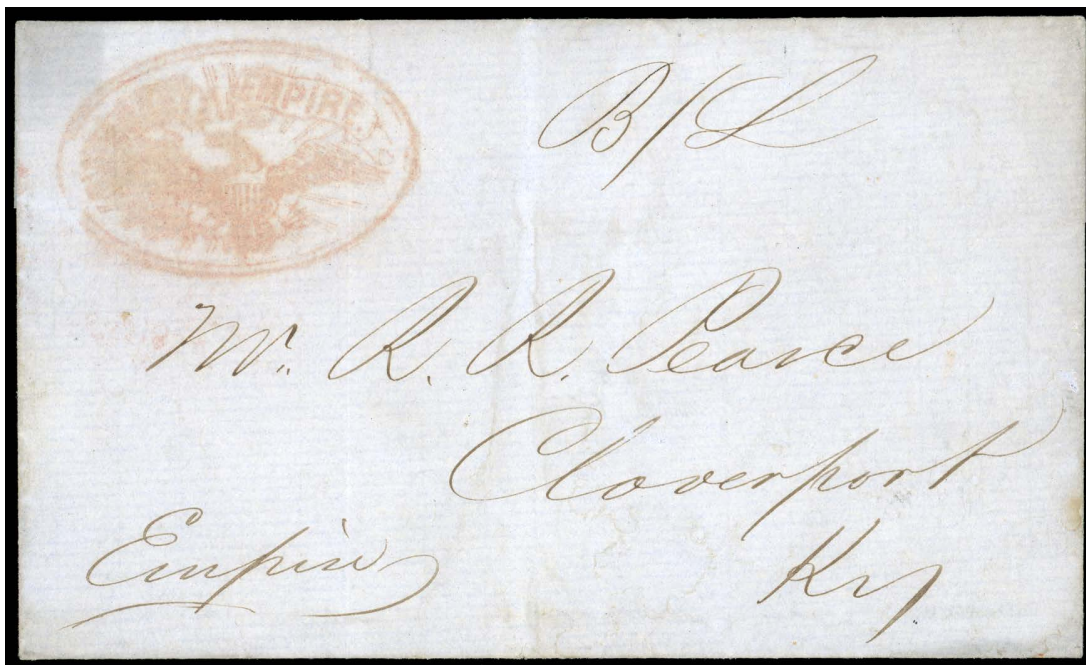 EMPIRE
B/L
Mr. R. R. Pearce
Cloverport
Empire
Ky